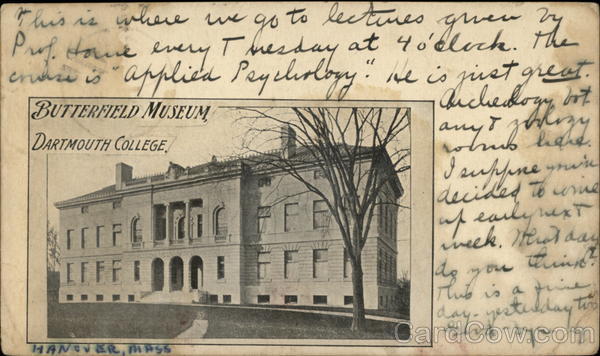 This is where we go to lectures given by
Prof. Horne every Tuesday at 4 o'clock. The
course is "Applied Psychology." He is just great.
BUTTERFIELD MUSEUM,
DARTMOUTH COLLEGE.
Archeology, bot
any & zoology
rooms here.
I suppose you've
decided to come
up early next
week. What day
do you think?
This is a fine
day - yesterday too
HANOVER, MASS
CardCow.com